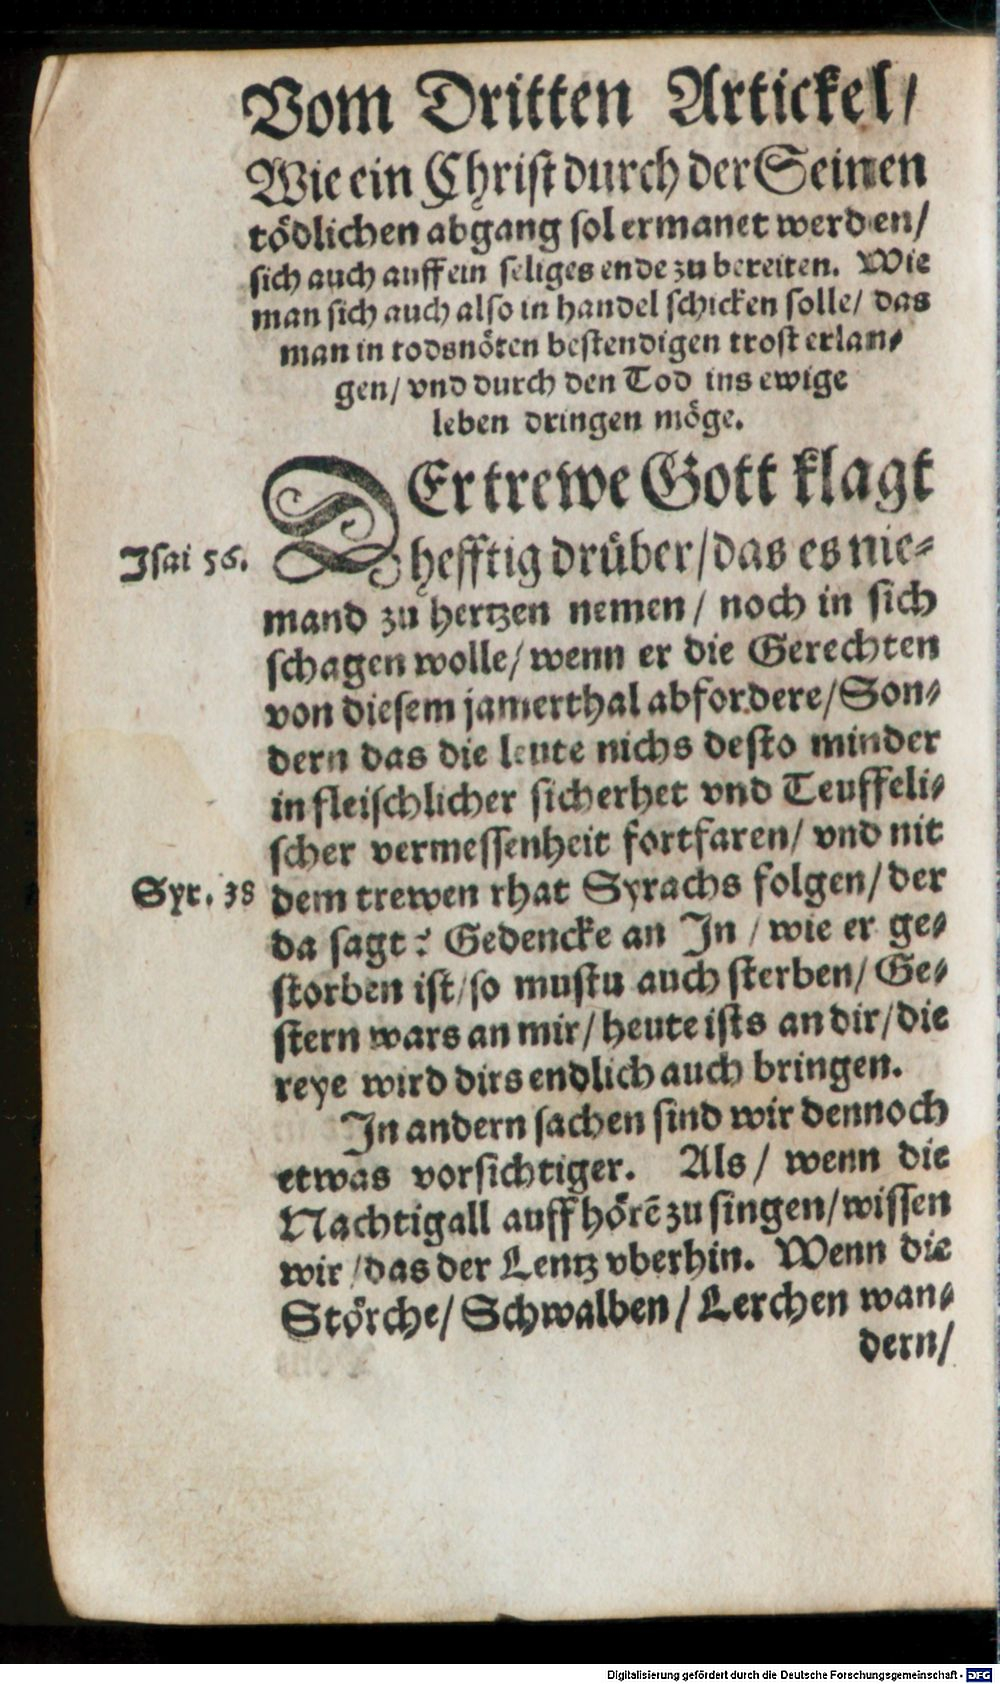 Vom Dritten Artickel/
Wie ein Christ durch der Seinen
tödlichen abgang sol ermanet werden/
sich auch auff ein seliges ende zu bereiten. Wie
man sich auch also in handel schicken solle/ das
man in todsnöten bestendigen trost erlan⸗
gen/ vnd durch den Tod ins ewige
leben dringen möge.
DEr trewe Gott klagt
Isai 56.
hefftig drüber/ das es nie⸗
mand zu hertzen nemen/ noch in sich
schagen wolle/ wenn er die Gerechten
von diesem jamerthal abfordere/ Son⸗
dern das die leute nichs desto minder
in fleischlicher sicherhet vnd Teuffeli⸗
scher vermessenheit fortfaren/ vnd nit
Syr. 38
dem trewen rhat Syrachs folgen/ der
da sagt: Gedencke an In / wie er ge⸗
storben ist/ so mustu auch sterben/ Ge⸗
stern wars an mir/ heute ists an dir/ die
reye wird dirs endlich auch bringen.
In andern sachen sind wir dennoch
etwas vorsichtiger. Als/ wenn die
Nachtigall auff hörẽ zu singen/ wissen
wir / das der Lentz vberhin. Wenn die
Störche/ Schwalben / Lerchen wan⸗
dern/
Digitalisierung gefördert durch die Deutsche Forschungsgemeinschaft - DFG